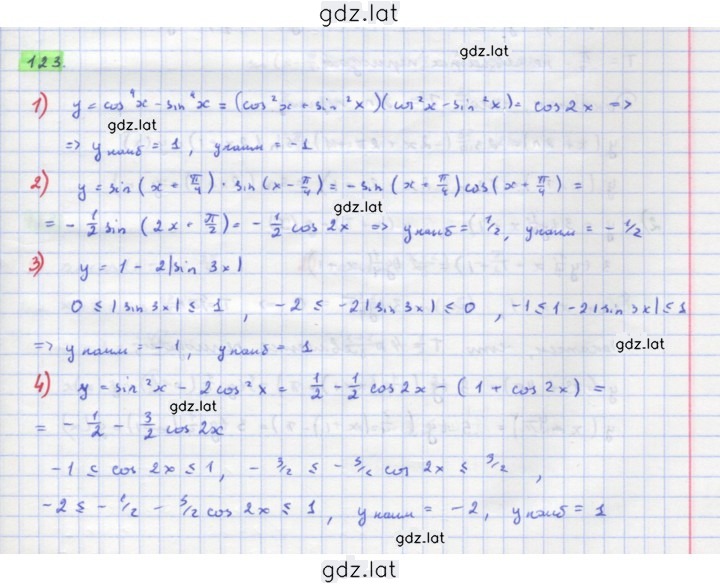 gdz.lat
123.
gdz.lat
1) y = cos⁴x - sin⁴x = (cos²x + sin²x)(cos²x - sin²x) = cos2x =>
gdz.lat
=> y наиб = 1, y наим = -1
2) y = sin(x + π/4) · sin(x - π/4) = -sin(x + π/4)cos(x + π/4) =
gdz.lat
= -1/2 sin(2x + π/2) = -1/2 cos 2x => y наиб = 1/2, y наим = -1/2
3) y = 1 - 2|sin 3x|
0 ≤ |sin 3x| ≤ 1, -2 ≤ -2|sin 3x| ≤ 0, -1 ≤ 1 - 2|sin 3x| ≤ 1
gdz.lat
=> y наим = -1, y наиб = 1
4) y = sin²x - 2cos²x = 1/2 - 1/2 cos2x - (1 + cos2x) =
gdz.lat
= -1/2 - 3/2 cos2x
-1 ≤ cos 2x ≤ 1, -3/2 ≤ -3/2 cos 2x ≤ 3/2,
-2 ≤ -1/2 - 3/2 cos 2x ≤ 1, y наим = -2, y наиб = 1
gdz.lat
gdz.lat